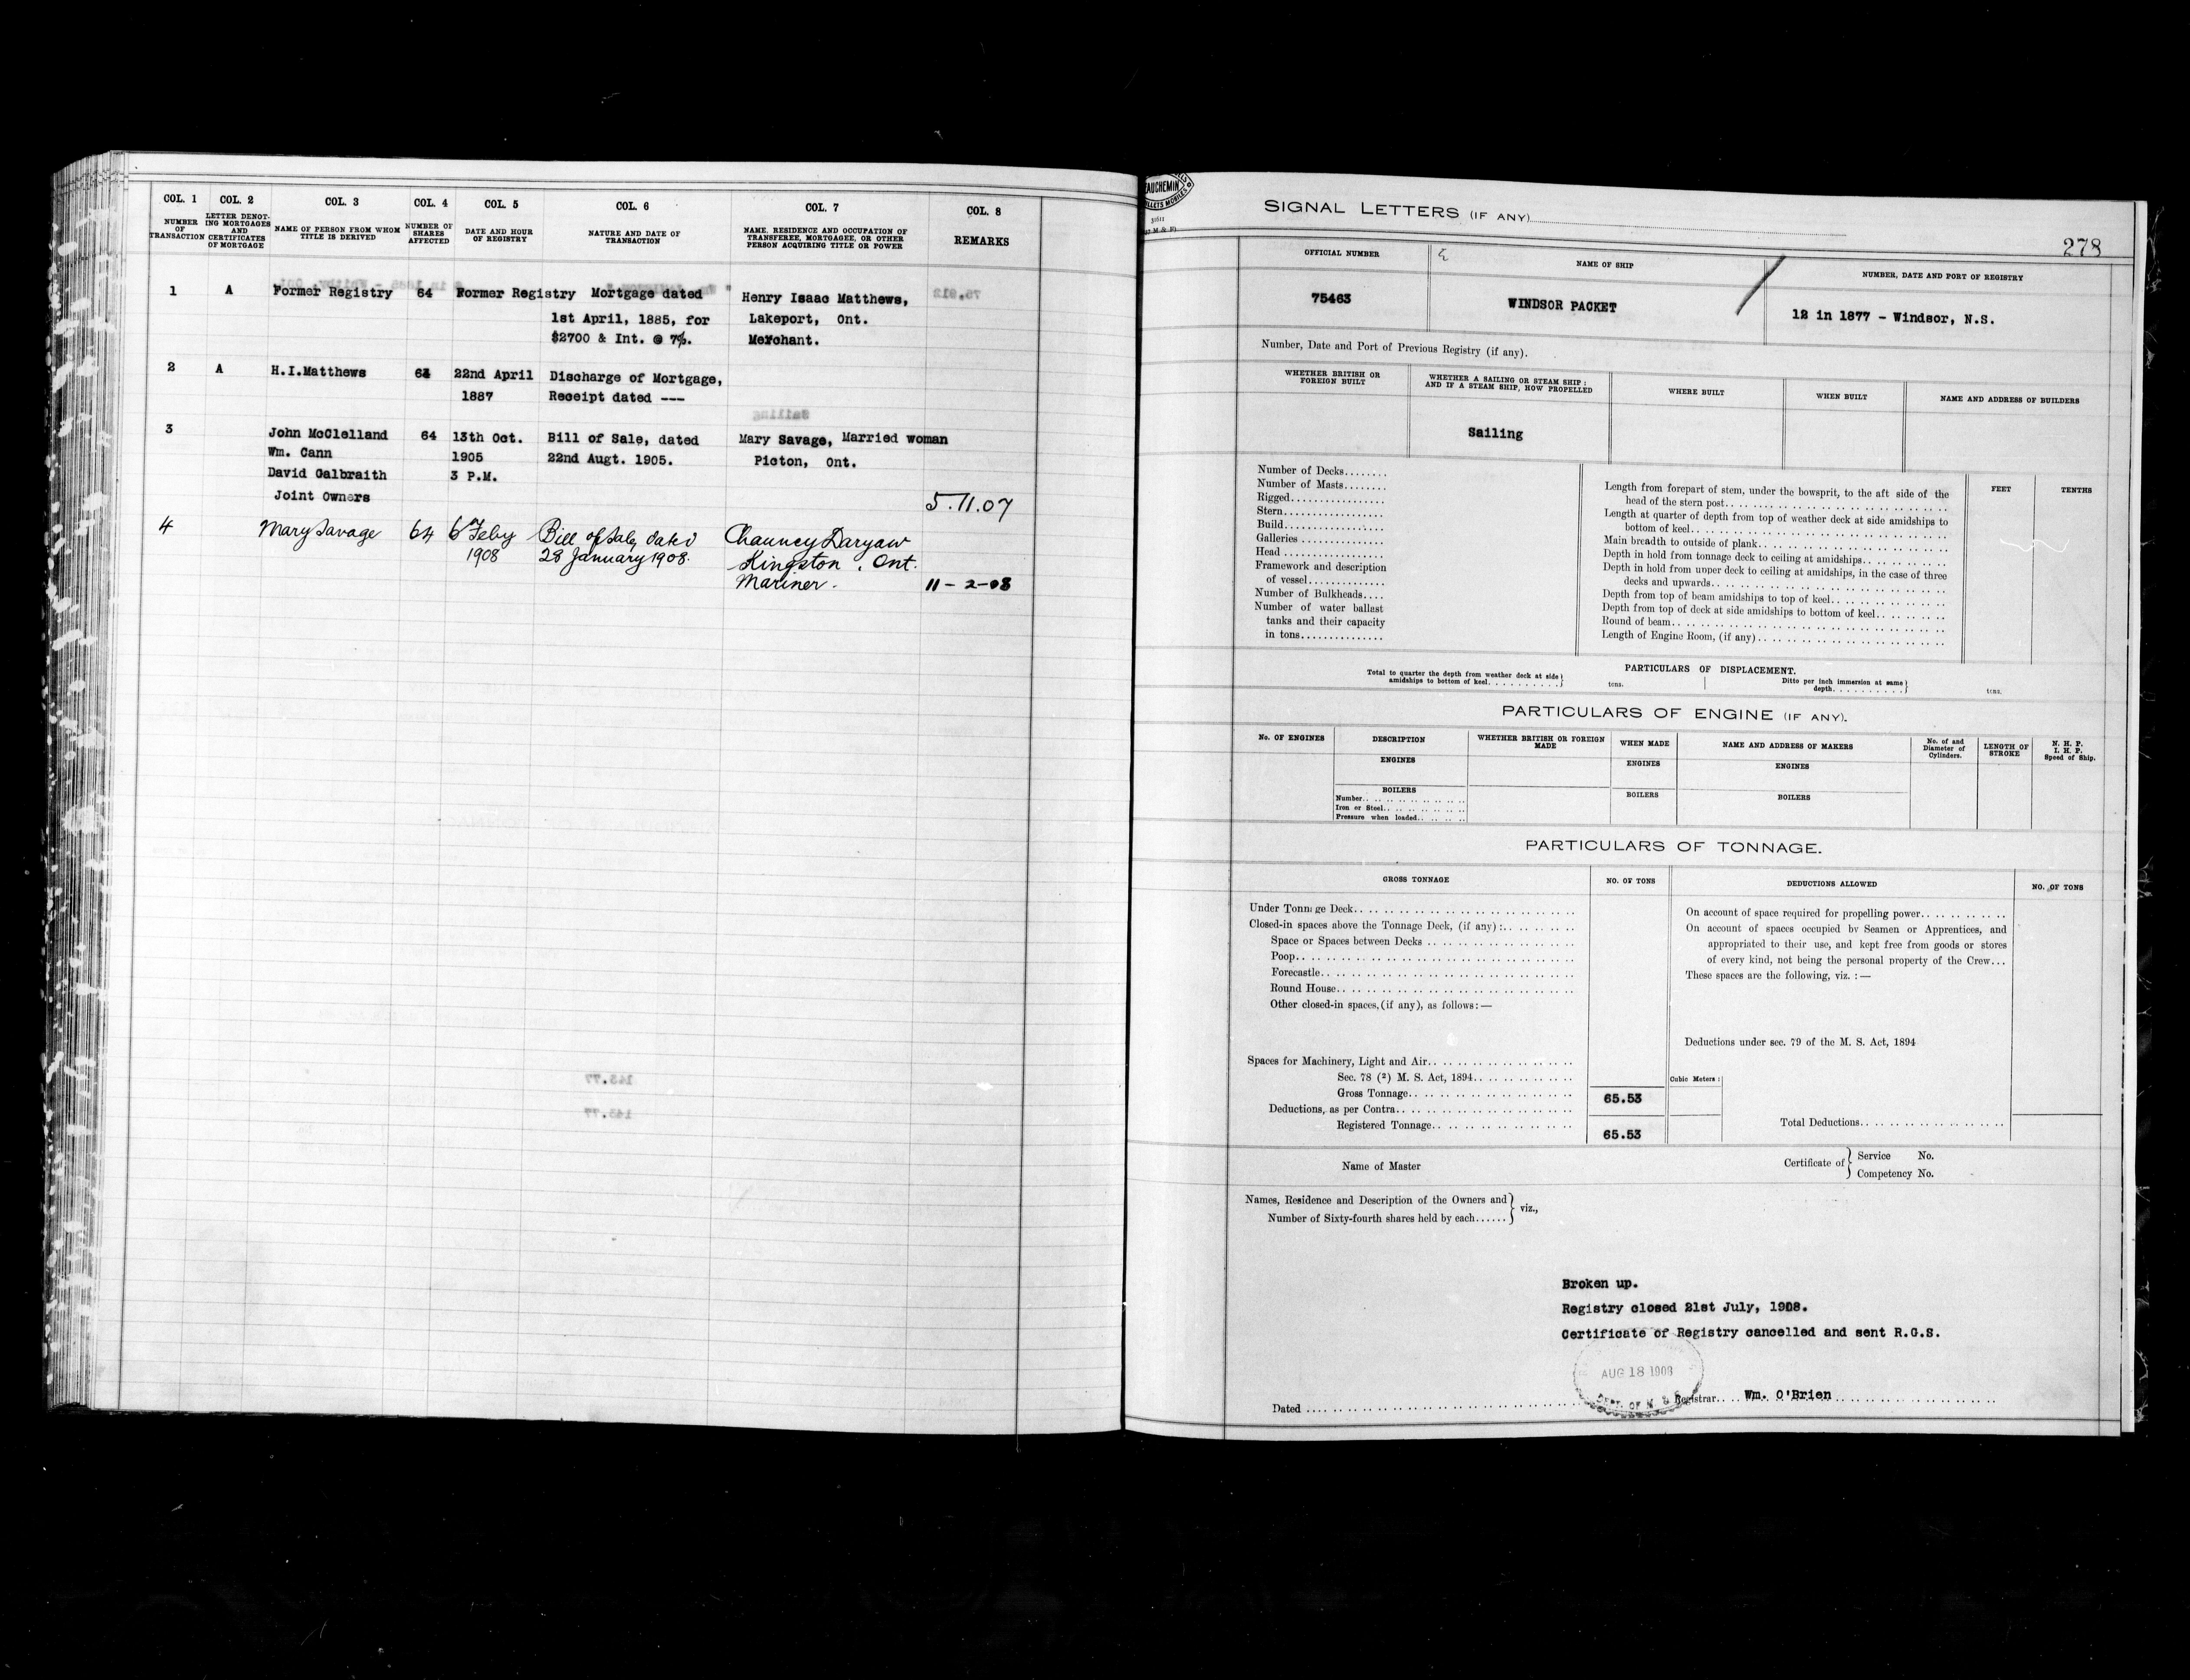 COL. 1 COL. 2 COL. 3 COL. 4 COL. 5 COL. 6 COL. 7 COL. 8
NUMBER OF TRANSACTION
LETTER DENOTING MORTGAGES AND CERTIFICATES OF MORTGAGE
NAME OF PERSON FROM WHOM TITLE IS DERIVED
NUMBER OF SHARES AFFECTED
DATE AND HOUR OF REGISTRY
NATURE AND DATE OF TRANSACTION
NAME, RESIDENCE AND OCCUPATION OF TRANSFEREE, MORTGAGEE, OR OTHER PERSON ACQUIRING TITLE OR POWER
REMARKS
1 A Former Registry 64 Former Registry Mortgage dated Henry Isaac Matthews,
1st April, 1885, for Lakeport, Ont.
$2700 & Int. @ 7%. Merchant.
2 A H.I.Matthews 64 22nd April Discharge of Mortgage,
1887 Receipt dated ---
3 John McClelland 64 13th Oct. Bill of Sale, dated Mary Savage, Married woman
Wm. Cann 1905 22nd Augt. 1905. Picton, Ont.
David Galbraith 3 P.M.
Joint Owners 5.11.07
4 Mary Savage 64 6 Feby Bill of Sale, dated Chauncy Daryaw
1908 28 January 1908. Kingston, Ont.
Mariner. 11-2-08
SIGNAL LETTERS (IF ANY)
278
OFFICIAL NUMBER NAME OF SHIP NUMBER, DATE AND PORT OF REGISTRY
75463 WINDSOR PACKET 12 in 1877 - Windsor, N.S.
Number, Date and Port of Previous Registry (if any).
WHETHER BRITISH OR FOREIGN BUILT
WHETHER A SAILING OR STEAM SHIP; AND IF A STEAM SHIP, HOW PROPELLED
WHERE BUILT
WHEN BUILT
NAME AND ADDRESS OF BUILDERS
Sailing
Number of Decks
Number of Masts
Rigged
Stern
Build
Galleries
Head
Framework and description
of vessel
Number of Bulkheads
Number of water ballast
tanks and their capacity
in tons
FEET TENTHS
Length from forepart of stem, under the bowsprit, to the aft side of the
head of the stern post
Length at quarter of depth from top of weather deck at side amidships to
bottom of keel
Main breadth to outside of plank
Depth in hold from tonnage deck to ceiling at amidships
Depth in hold from upper deck to ceiling at amidships, in the case of three
decks and upwards
Depth from top of beam amidships to top of keel
Depth from top of deck at side amidships to bottom of keel
Round of beam
Length of Engine Room, (if any)
PARTICULARS OF DISPLACEMENT.
Total to quarter the depth from weather deck at side
amidships to bottom of keel
tons.
Ditto per inch immersion at same
depth
tons.
PARTICULARS OF ENGINE (IF ANY).
No. OF ENGINES
DESCRIPTION
WHETHER BRITISH OR FOREIGN MADE
WHEN MADE
NAME AND ADDRESS OF MAKERS
No. of and Diameter of Cylinders.
LENGTH OF STROKE
N. H. P.
I. H. P.
Speed of Ship.
ENGINES ENGINES ENGINES
BOILERS BOILERS BOILERS
Number
Iron or Steel
Pressure when loaded
PARTICULARS OF TONNAGE.
GROSS TONNAGE NO. OF TONS DEDUCTIONS ALLOWED NO. OF TONS
Under Tonnage Deck
Closed-in spaces above the Tonnage Deck, (if any) :
Space or Spaces between Decks
Poop
Forecastle
Round House
Other closed-in spaces, (if any), as follows: —
Spaces for Machinery, Light and Air
Sec. 78 (2) M. S. Act, 1894
Gross Tonnage 65.53
Deductions, as per Contra
Registered Tonnage 65.53
On account of space required for propelling power
On account of spaces occupied by Seamen or Apprentices, and
appropriated to their use, and kept free from goods or stores
of every kind, not being the personal property of the Crew
These spaces are the following, viz. : —
Deductions under sec. 79 of the M. S. Act, 1894
Cubic Meters :
Total Deductions
Name of Master
Certificate of { Service No.
Competency No.
Names, Residence and Description of the Owners and
Number of Sixty-fourth shares held by each } viz.,
Broken up.
Registry closed 21st July, 1908.
Certificate of Registry cancelled and sent R.G.S.
AUG 18 1908
Dated Registrar Wm. O'Brien